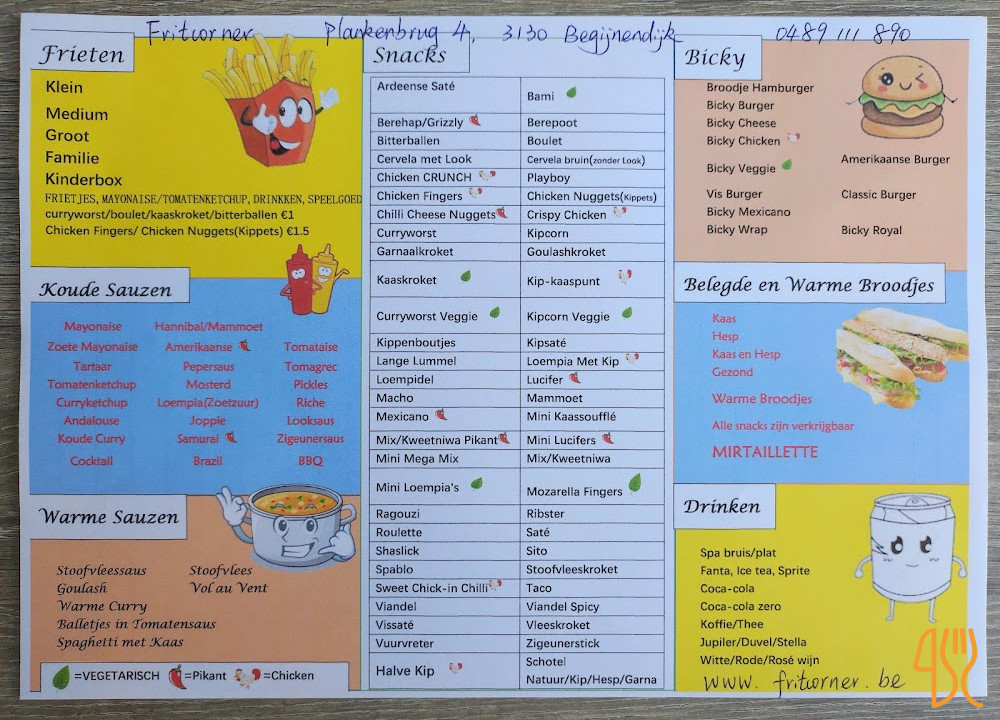 Fritcorner Plankenbrug 4, 3130 Begijnendijk 0489 111 890
Frieten
Klein
Medium
Groot
Familie
Kinderbox
FRIETJES, MAYONAISE/TOMATENKETCHUP, DRINKKEN, SPEELGOED
curryworst/boulet/kaaskroket/bitterballen €1
Chicken Fingers/ Chicken Nuggets(Kippets) €1.5
Koude Sauzen
Mayonaise Hannibal/Mammoet
Zoete Mayonaise Amerikaanse Tomataise
Tartaar Pepersaus Tomagrec
Tomatenketchup Mosterd Pickles
Curryketchup Loempia(Zoetzuur) Riche
Andalouse Joppie Looksaus
Koude Curry Samurai Zigeunersaus
Cocktail Brazil BBQ
Warme Sauzen
Stoofvleessaus Stoofvlees
Goulash Vol au Vent
Warme Curry
Balletjes in Tomatensaus
Spaghetti met Kaas
=VEGETARISCH =Pikant =Chicken
Snacks
Ardeense Saté Bami
Berehap/Grizzly Berepoot
Bitterballen Boulet
Cervela met Look Cervela bruin(zonder Look)
Chicken CRUNCH Playboy
Chicken Fingers Chicken Nuggets(Kippets)
Chilli Cheese Nuggets Crispy Chicken
Curryworst Kipcorn
Garnaalkroket Goulashkroket
Kaaskroket Kip-kaaspunt
Curryworst Veggie Kipcorn Veggie
Kippenboutjes Kipsaté
Lange Lummel Loempia Met Kip
Loempidel Lucifer
Macho Mammoet
Mexicano Mini Kaassoufflé
Mix/Kweetniwa Pikant Mini Lucifers
Mini Mega Mix Mix/Kweetniwa
Mini Loempia's Mozarella Fingers
Ragouzi Ribster
Roulette Saté
Shaslick Sito
Spablo Stoofvleeskroket
Sweet Chick-in Chilli Taco
Viandel Viandel Spicy
Vissaté Vleeskroket
Vuurvreter Zigeunerstick
Halve Kip Schotel
Natuur/Kip/Hesp/Garna
Bicky
Broodje Hamburger
Bicky Burger
Bicky Cheese
Bicky Chicken
Amerikaanse Burger
Bicky Veggie
Vis Burger Classic Burger
Bicky Mexicano
Bicky Wrap Bicky Royal
Belegde en Warme Broodjes
Kaas
Hesp
Kaas en Hesp
Gezond
Warme Broodjes
Alle snacks zijn verkrijgbaar
MIRTAILLETTE
Drinken
Spa bruis/plat
Fanta, Ice tea, Sprite
Coca-cola
Coca-cola zero
Koffie/Thee
Jupiler/Duvel/Stella
Witte/Rode/Rosé wijn
www. fritcorner.be